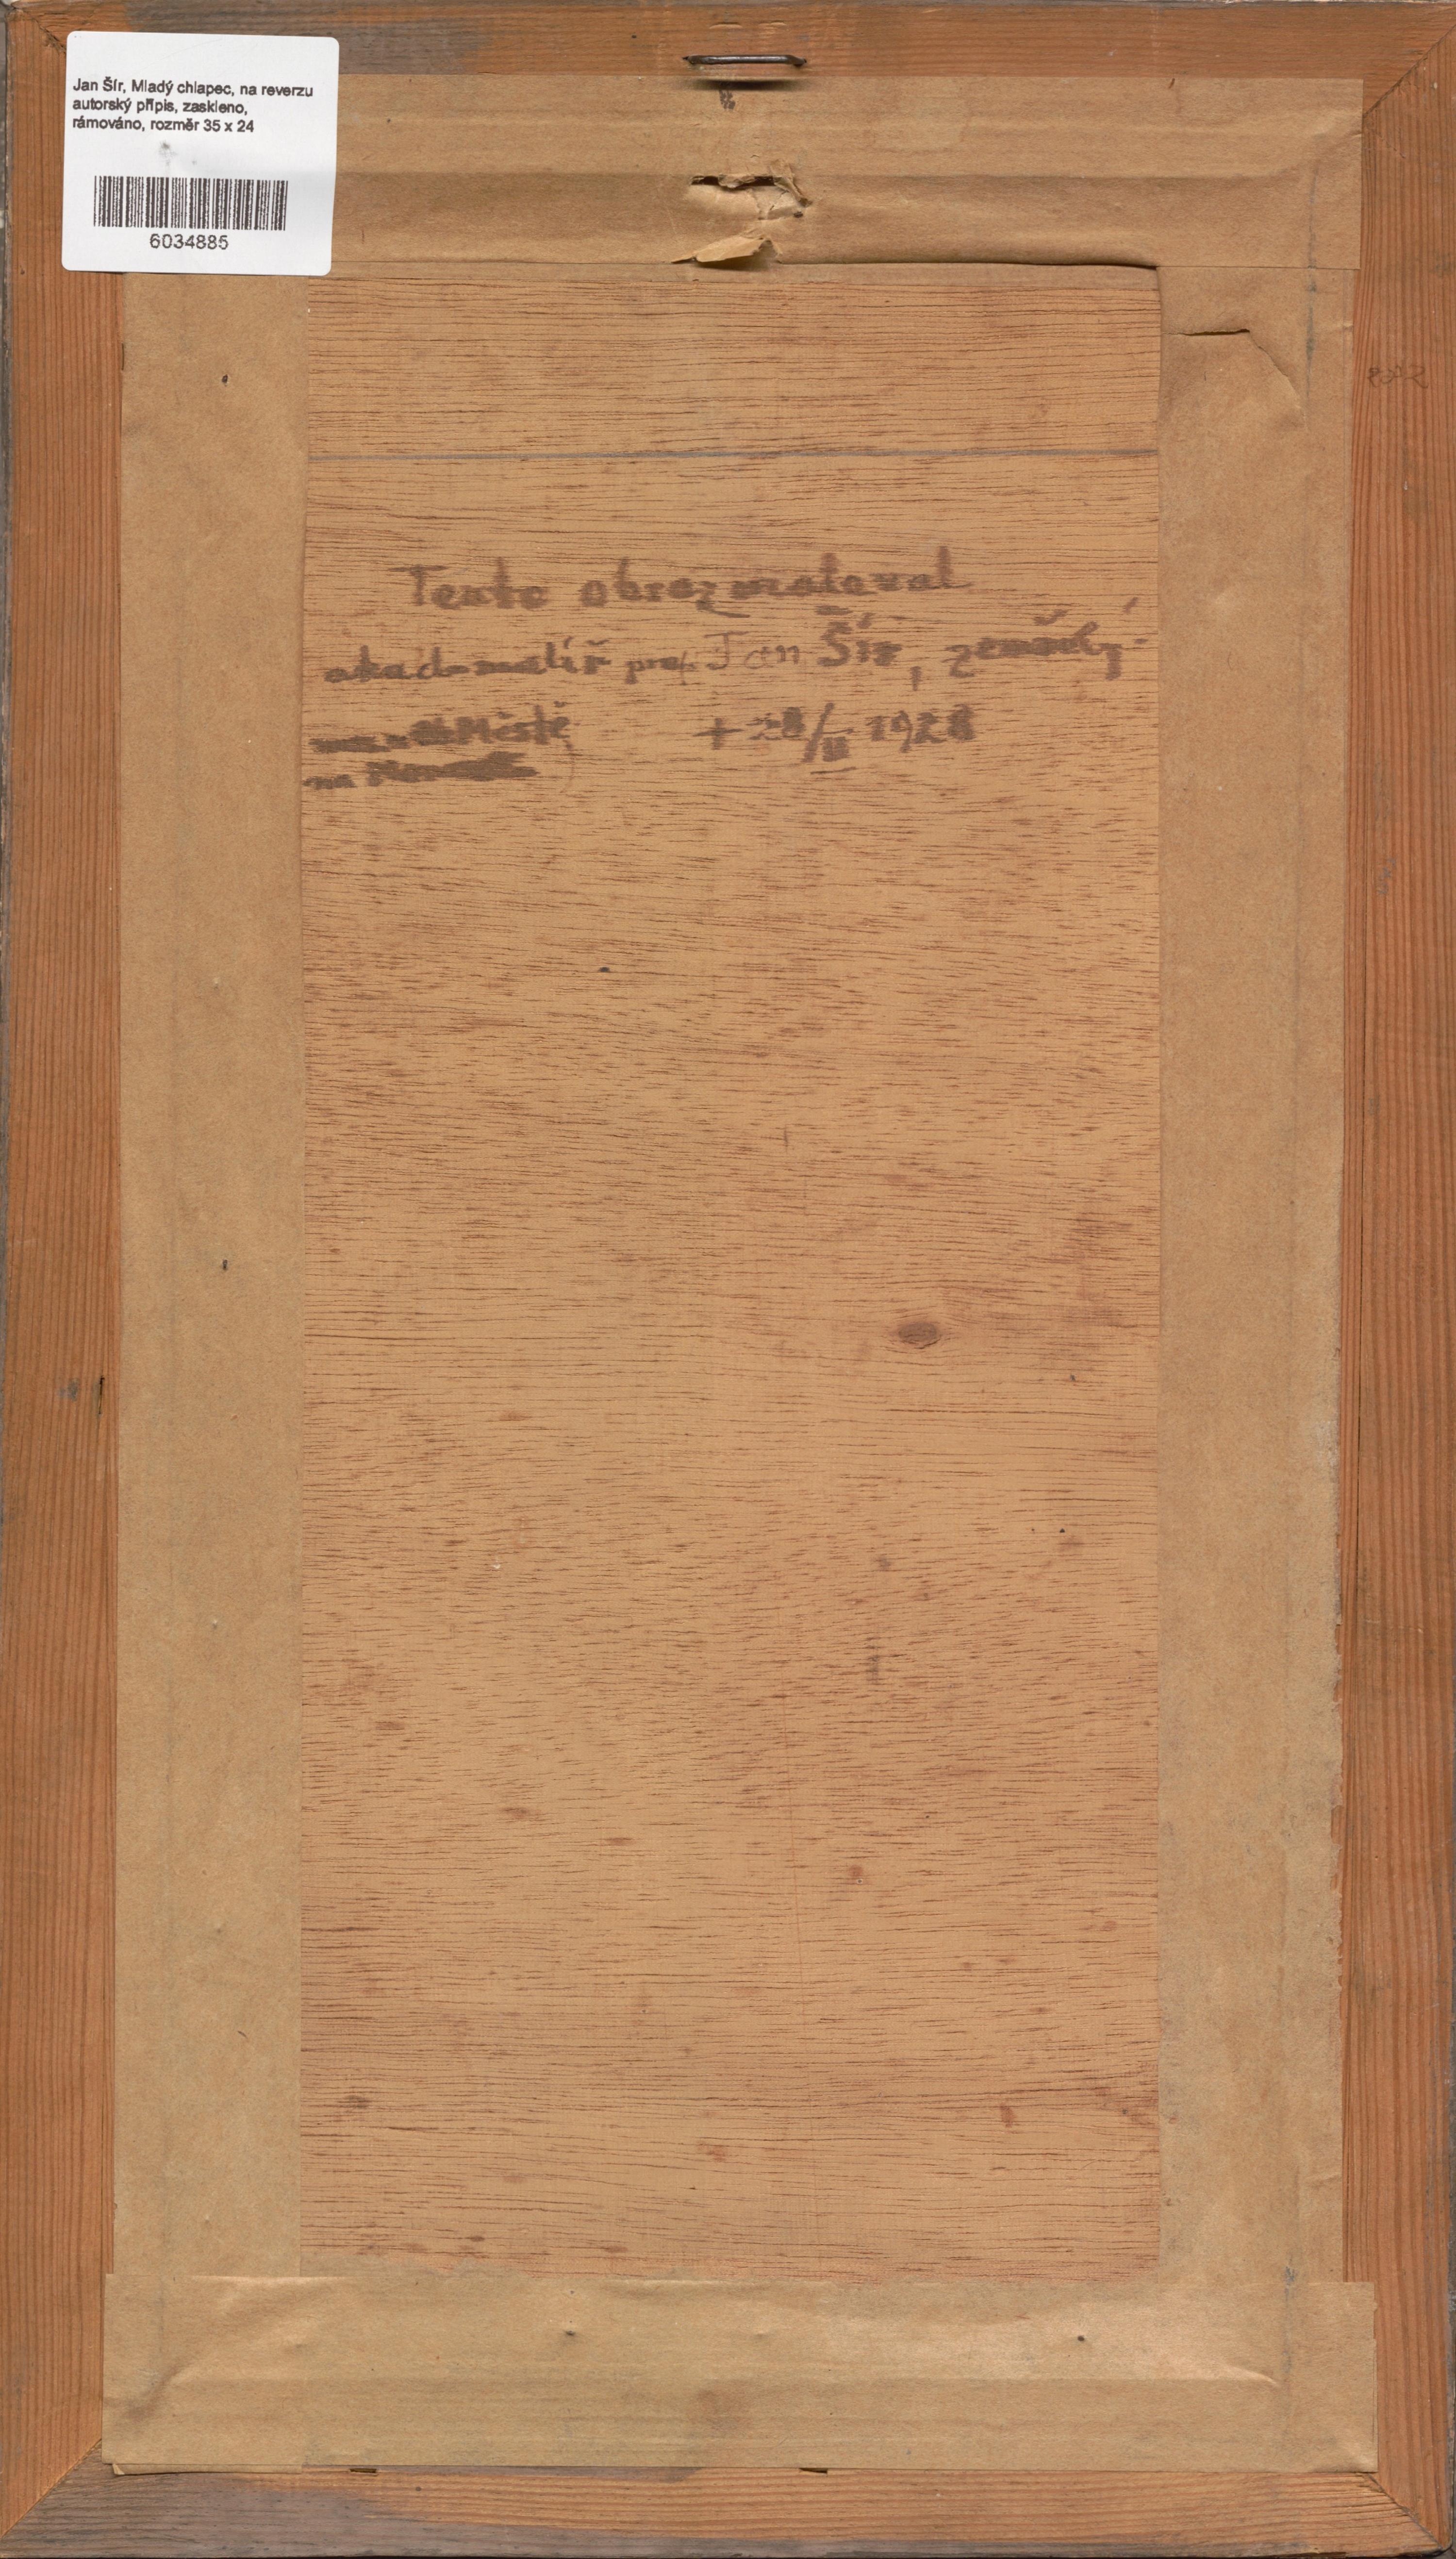 Jan Šír, Mladý chlapec, na reverzu
autorský přípis, zaskleno,
rámováno, rozměr 35 x 24
6034885
Tento obraz maloval
akad. malíř prof. Jan Šír, zemřelý
Městě + 28/II 1928
na